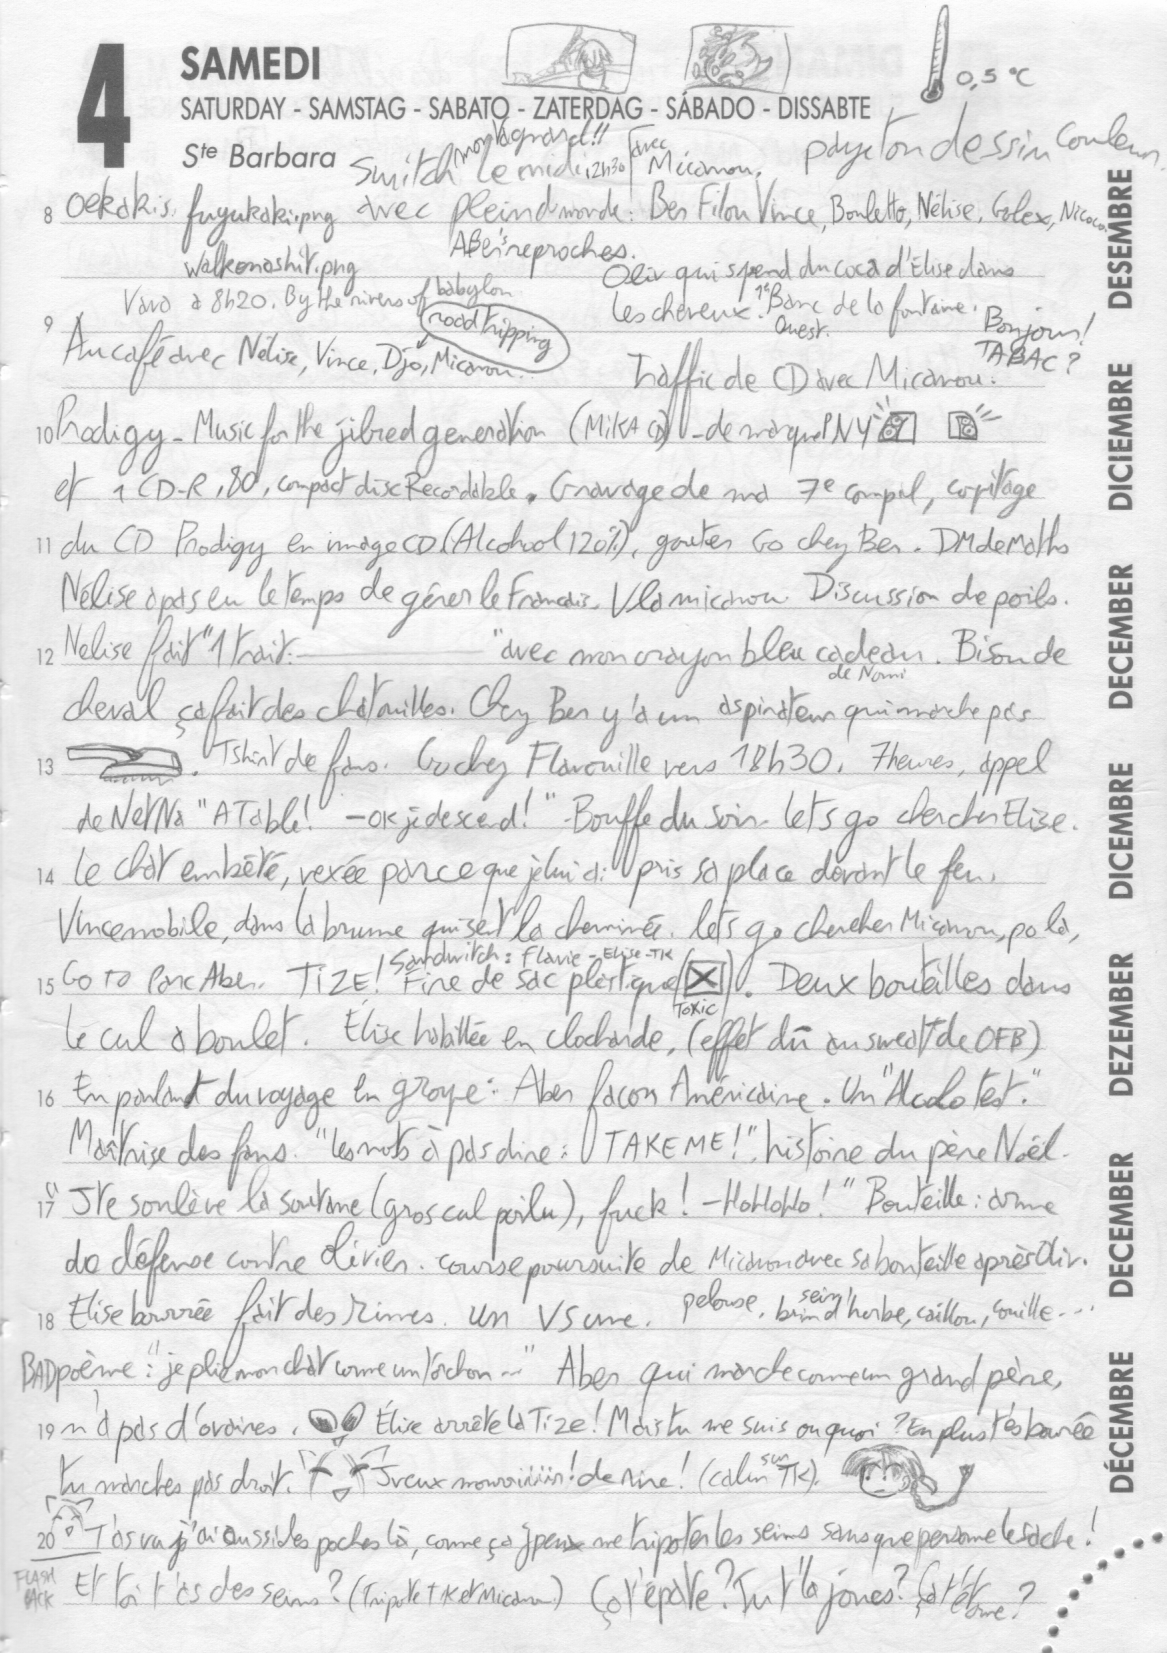 4
SAMEDI
0,5 °C
SATURDAY - SAMSTAG - SABATO - ZATERDAG - SÁBADO - DISSABTE
Ste Barbara
montagnard!!
Switch le midi, 12h30 avec Micanou.
paye ton dessin couleur
8 Oekakis. fuyukaki.png avec plein d'monde: Ben Filou Vince, Bouletto, Nélise, Golex, Nicoco
walkonoshit.png
Aber's reproches.
Oliv qui spend du coca d'Élise dans
les cheveux. 1e Banc de la fontaine.
Ouest.
Vavo à 8h20. By the rivers of babylon
road tripping
Bonjour!
TABAC?
9 Au café avec Nélise, Vince, Djo, Micanou..
Traffic de CD avec Micanou.
10 Prodigy - Music for the jilted generation (MiKA CD) - de marque PNY
et 1 CD-R, 80, compact disc Recordable. Gravage de ma 7e compil, copitage
11 du CD Prodigy en image CD (Alcohool 120%), gouter Go chez Ben. DM de Maths
Nélise a pas eu le temps de gérer le Francais. Vla micanou. Discussion de poils.
12 Nelise fait "1 trait: "avec mon crayon bleu cadeau. Bison de
de Nomi
cheval ça fait des chatouilles. Chez Ben y'a un aspirateur qui marche pas
13 . Tshirt de fans. Go chez Flavouille vers 18h30. 7heures, appel
de NetNa "A Table! - OK je descend!" - Bouffe du soir. Lets go chercher Elise.
14 Le chat embêté, vexée parce que j'lui ai pris sa place devant le feu.
Vincemobile, dans la brume qui sent la cheminée. Lets go chercher Micanou, po là,
Sandwitch: Flavie - Elise - TK
15 Go to Parc Aber. TiZE! Fire de sac plastique . Deux bouteilles dans
TOXIC
le cul à boulet. Élise habillée en clocharde, (effet dû au sweat de OFB)
16 En parlant du voyage en groupe: Aber façon Américaine. Un "Alcolo test."
Maîtrise des fans. "Les mots à pas dire: TAKE ME!", histoire du père Noël.
17 "J'te soulève la soutane (gros cul poilu), fuck! - HoHoHo!" Bouteille: arme
de défense contre Olivier. course poursuite de Micanou avec sa bouteille après Oliv.
18 Elise bourrée fait des rimes. Un VS une. pelouse, brin d'herbe, caillou, couille...
sein
BAD poème: "je plie mon chat comme un torchon..." Aber qui marche comme un grand père,
19 n'a pas d'ovaires. Élise arrête la Tize! Mais tu me suis ou quoi? En plus t'es bourrée
tu marches pas droit. J'veux mouriiiiir! de rire! (calin sur TK).
20 T'as vu j'ai aussi des poches là, comme ça j'peux me tripoter les seins sans que personne le sache!
FLASH BACK
Et toi t'as des seins? (Tripote TK et Micanou) Ça t'épate? Tu t'la joues?